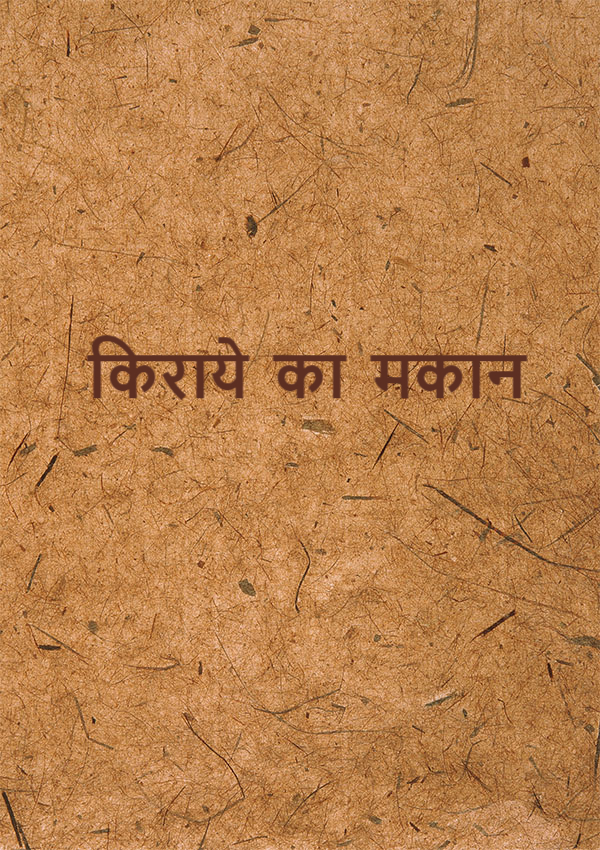 किराये का मकान